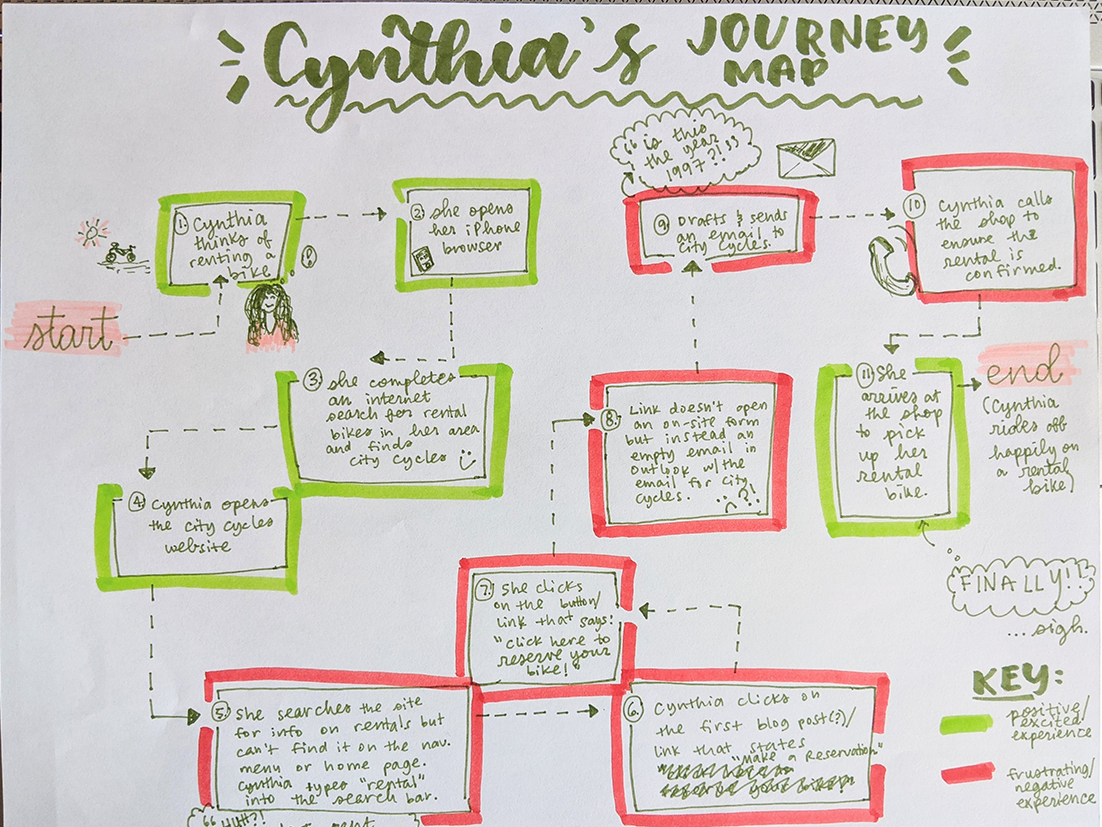 Cynthia's JOURNEY
MAP
start
1. Cynthia
thinks of
renting a
bike
2 she opens
her iPhone
browser
3 she completes
an internet
search for rental
bikes in her area
and finds
city cycles
4 Cynthia opens
the city cycles
website
5. She searches the site
for info on rentals but
can't find it on the nav.
menu or home page.
Cynthia types "rental"
into the search bar.
"HUH?!
6. Cynthia clicks on
the first blog post(?)/
link that states
"Make a Reservation"
7. She clicks
on the button/
link that says:
"Click here to
reserve your
bike!"
8. Link doesn't open
an on-site form
but instead an
empty email in
outlook w/the
email for city
cycles.
?!
"is this
the year
1997?!"
9 Drafts & sends
an email to
City Cycles.
10 Cynthia calls
the shop to
ensure the
rental is
confirmed.
11. She
arrives at
the shop
to pick
up her
rental
bike.
end
(Cynthia
rides off
happily on
a rental
bike)
FINALLY!!
...sigh.
KEY:
positive/
excited
experience
frustrating/
negative
experience